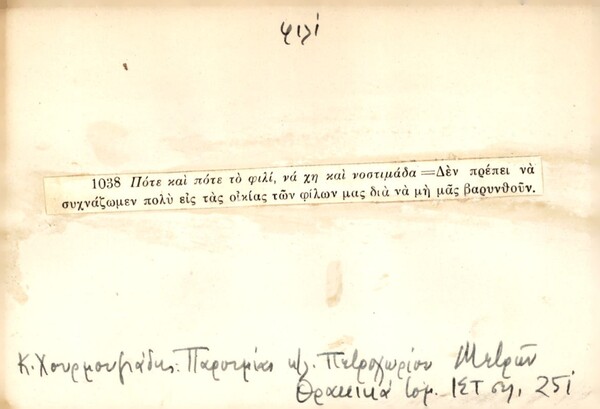 φιλί
1038 Πότε καὶ πότε τὸ φιλί, νά χη καὶ νοστιμάδα = Δὲν πρέπει νὰ
συχνάζωμεν πολὺ εἰς τὰς οἰκίας τῶν φίλων μας διὰ νὰ μὴ μᾶς βαρυνθοῦν.
Κ. Χουρμουζιάδης: Παροιμίαι κλ. Πετροχωρίου Μετρῶν
Θρακικά τομ. ΙΣΤ σ. 251